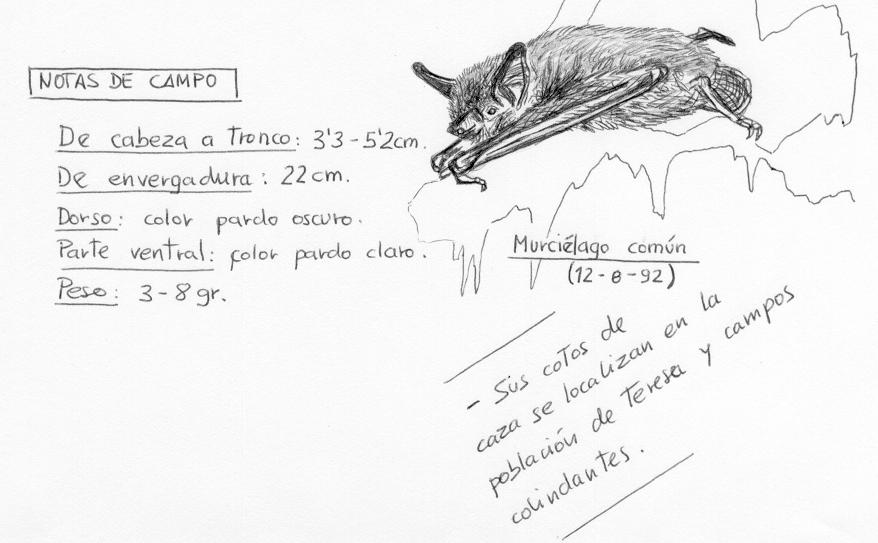 NOTAS DE CAMPO
De cabeza a tronco: 3'3 - 5'2cm.
De envergadura: 22cm.
Dorso: color pardo oscuro.
Parte ventral: color pardo claro.
Peso: 3-8 gr.
Murciélago común
(12-8-92)
- Sus cotos de
caza se localizan en la
población de Teresa y campos
colindantes.